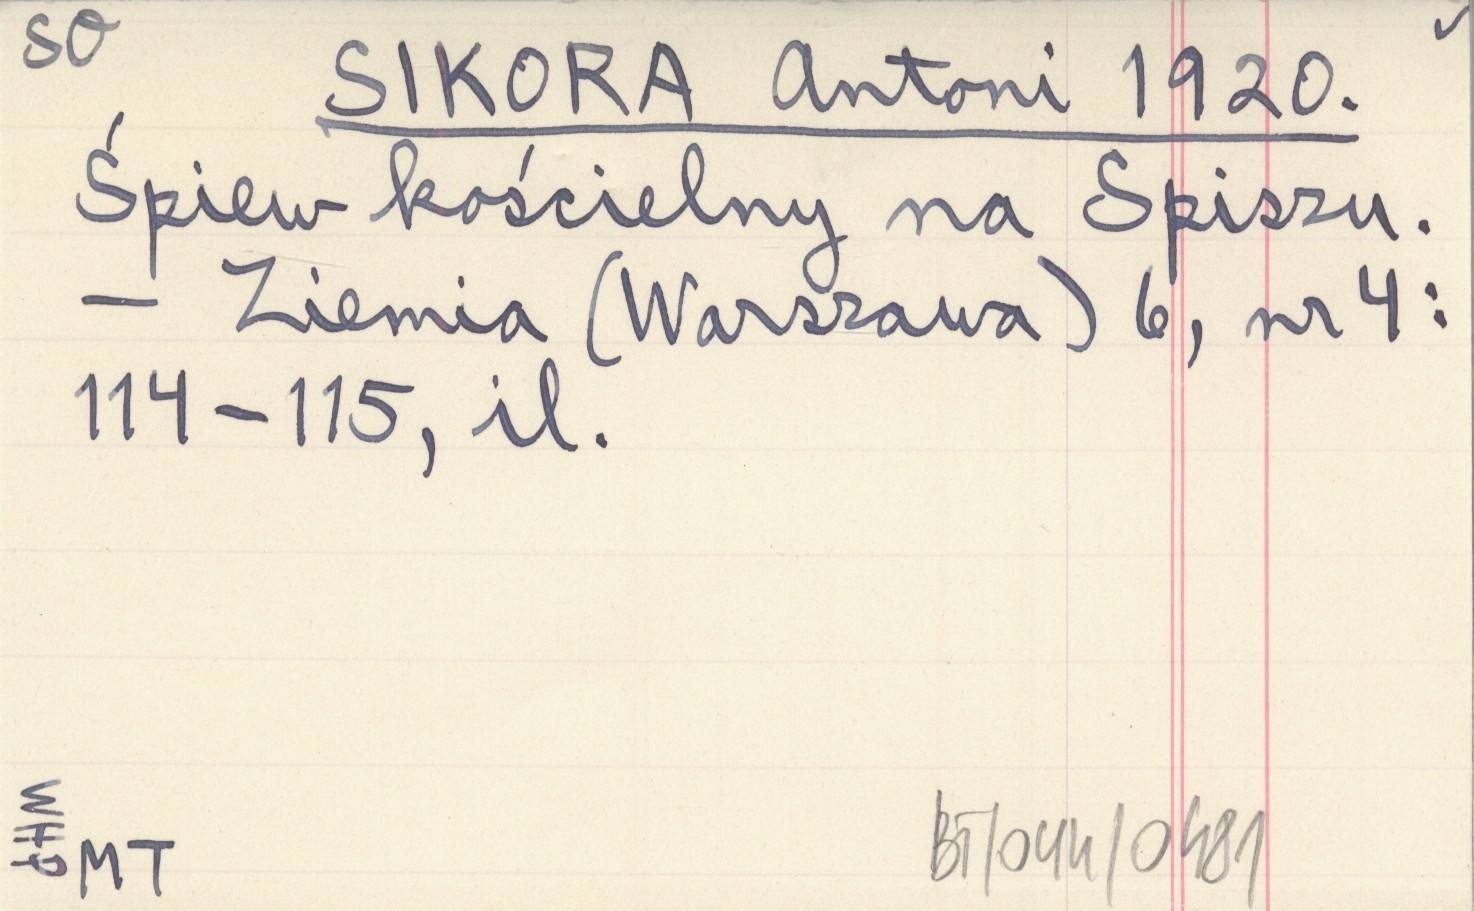 SO
SIKORA Antoni 1920.
Śpiew kościelny na Spiszu.
— Ziemia (Warszawa) 6, nr 4:
114-115, il.
MT
BT/044/0481